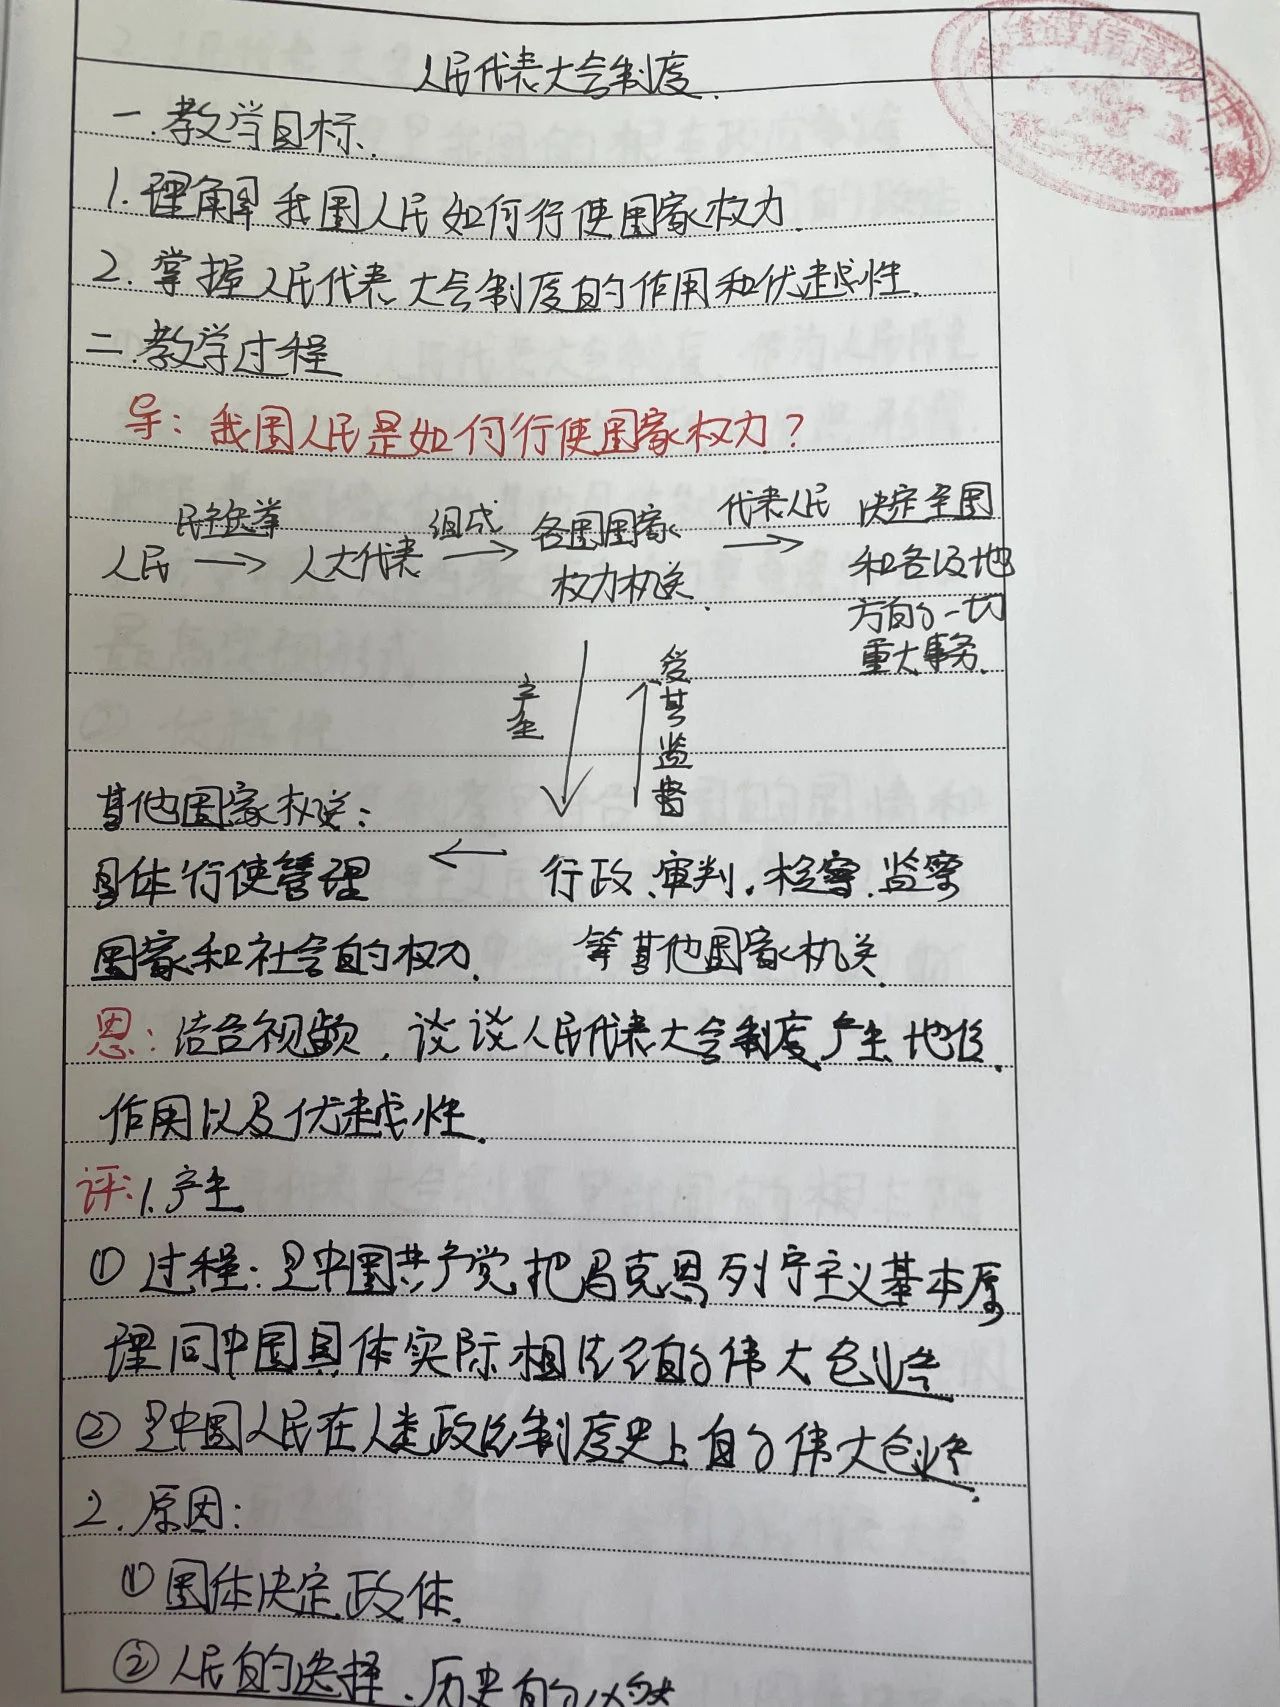 人民代表大会制度.
一.教学目标.
1.理解我国人民如何行使国家权力.
2.掌握人民代表大会制度的作用和优越性.
二.教学过程
导:我国人民是如何行使国家权力?
民主选举 组成 代表人民 决定全国
人民 → 人大代表 → 各国国家 → 和各级地
权力机关. 方的一切
重大事务.
产生 受其监督
其他国家权送:
具体行使管理 ← 行政、审判、检察、监察
国家和社会的权力. 等其他国家机关.
思:结合视频,谈谈人民代表大会制度产生地位.
作用以及优越性.
评:1.产生
①过程:是中国共产党把马克思列宁主义基本原
理同中国具体实际相结合的伟大创造
②是中国人民在人类政治制度史上的伟大创造.
2.原因:
①国体决定政体.
②人民的选择、历史的必然